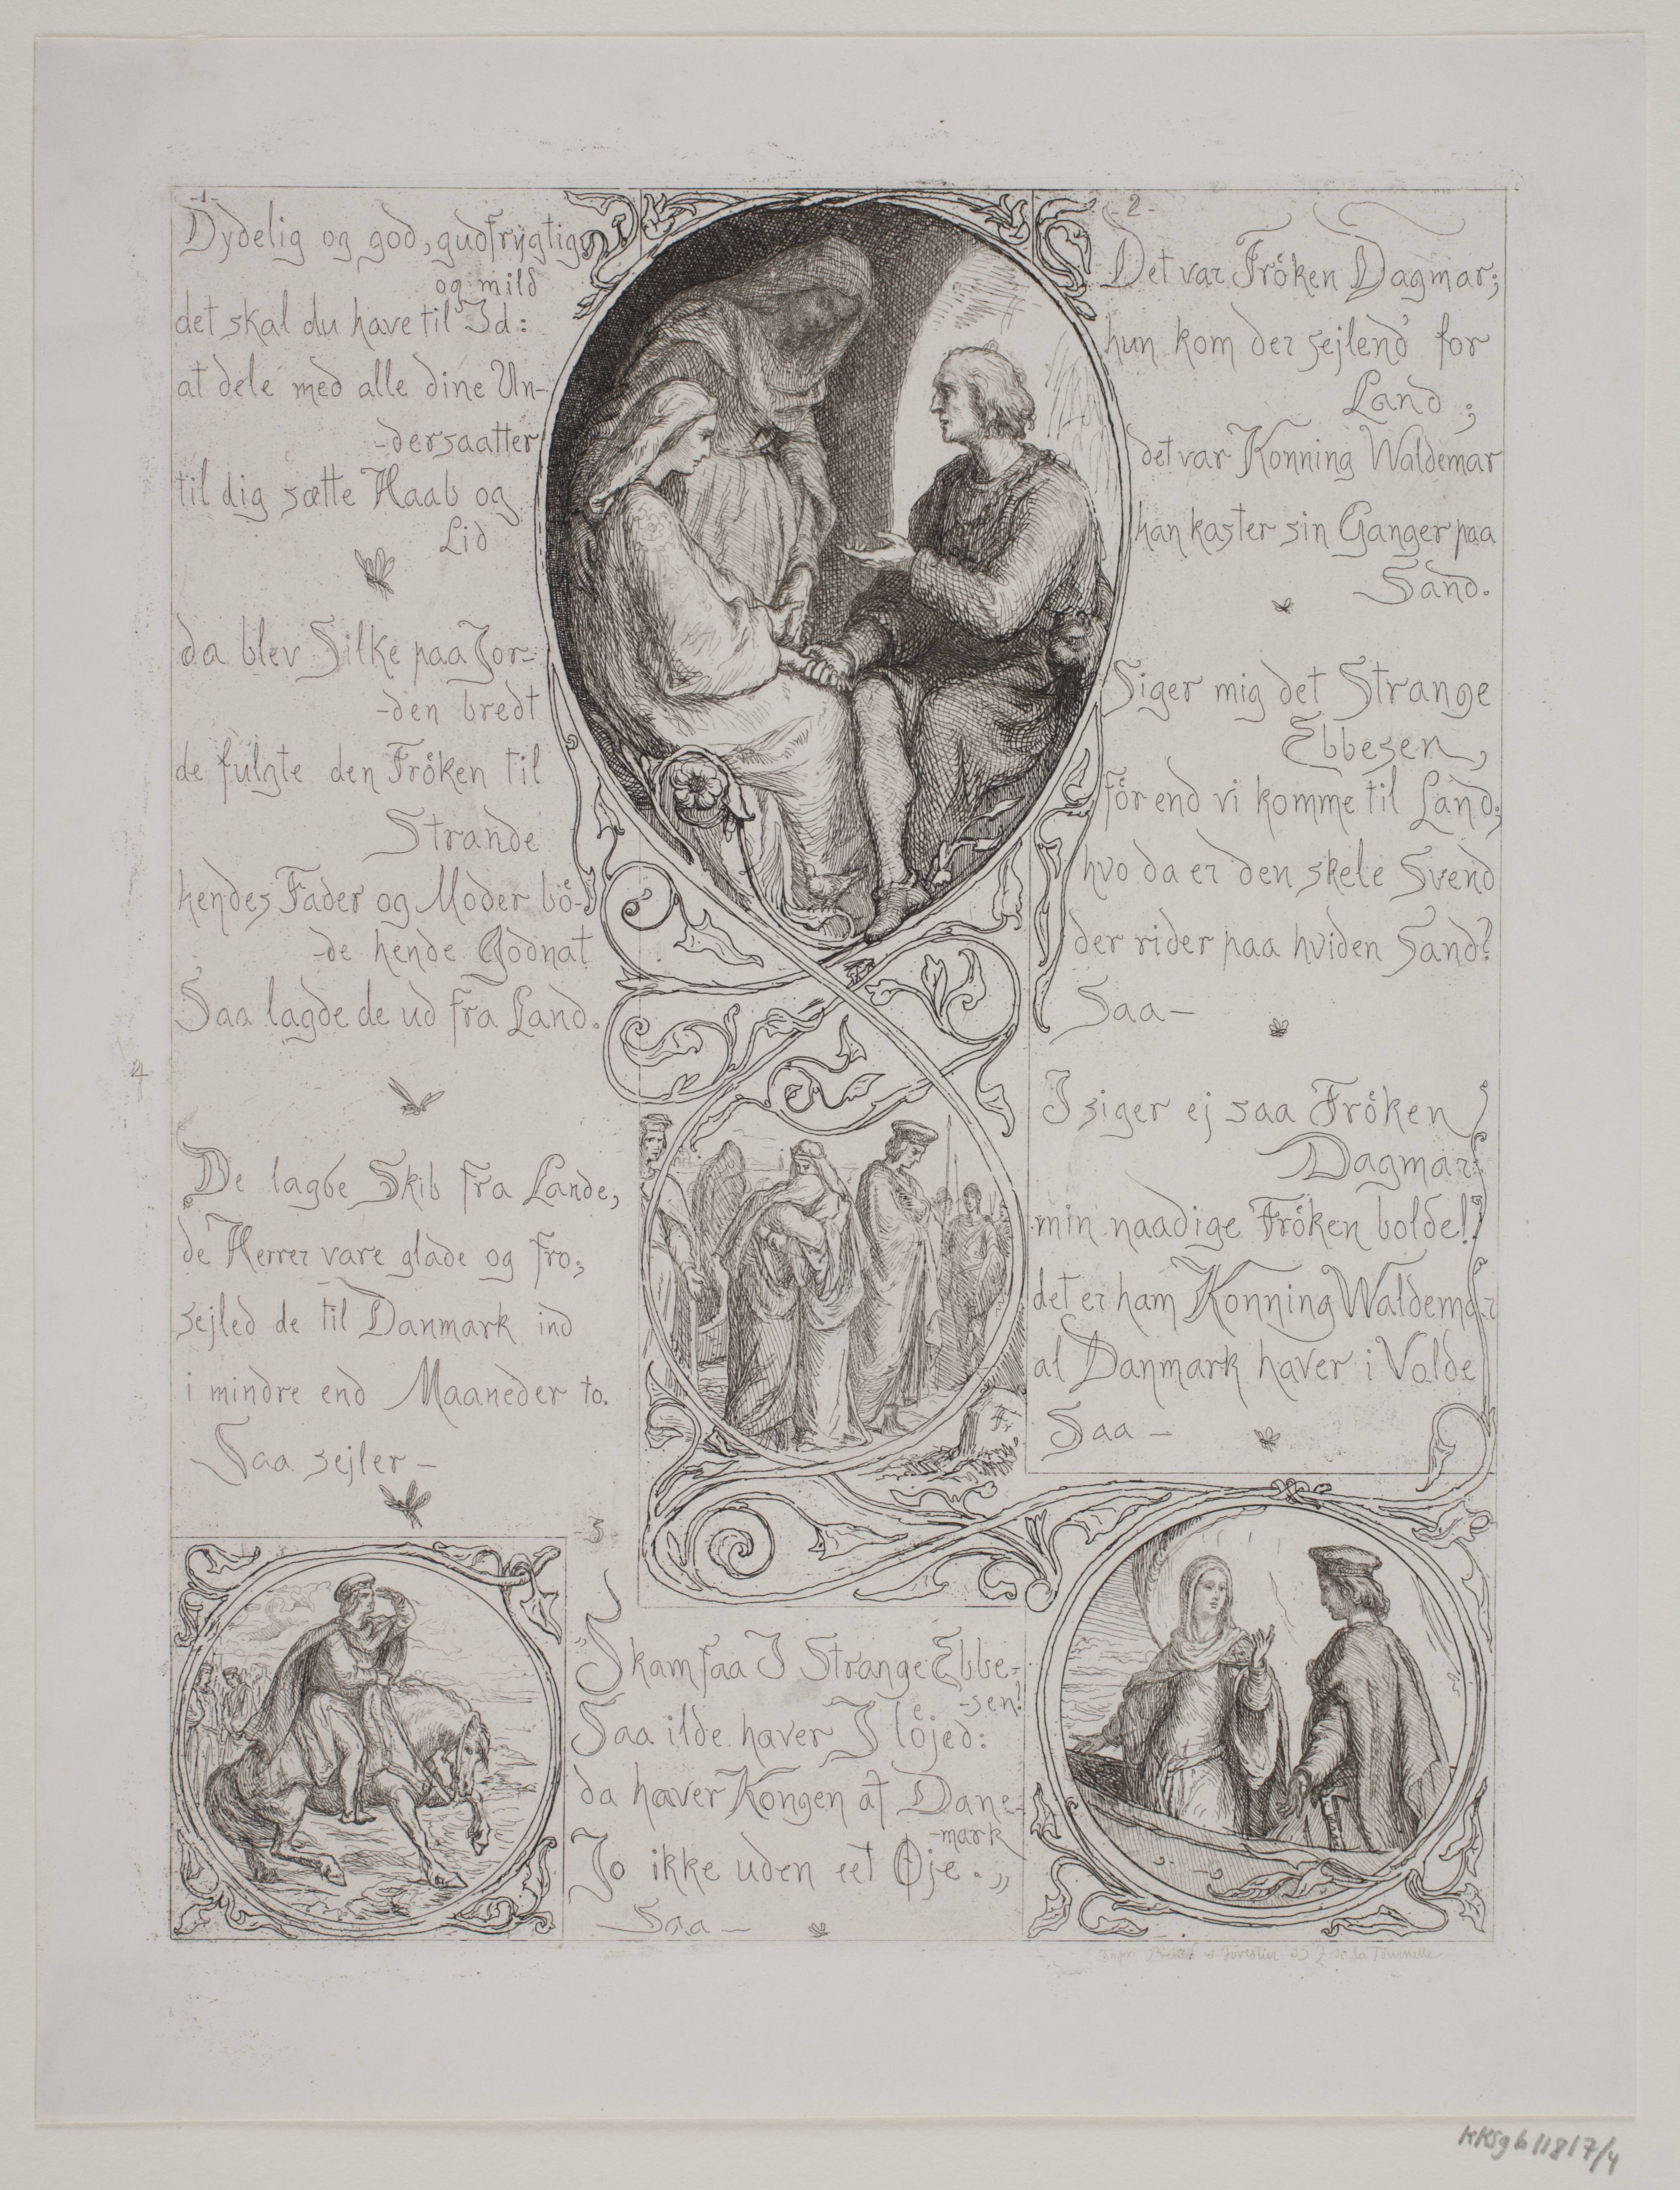 -1-
Dydelig og god, gudfrygtig
og mild
det skal du have til Id:
at dele med alle dine Un-
-dersaatter
til dig sætte Haab og
Lid
da blev Silke paa Jor-
-den bredt
de fulgte den Fröken til
Strande
hendes Fader og Moder bö-
-de hende Godnat
Saa lagde de ud fra Land.
De lagde Skib fra Lande,
de Herrer vare glade og fro;
sejled de til Danmark ind
i mindre end Maaneder to.
Saa sejler –
-2-
Det var Fröken Dagmar;
hun kom der sejlend' for
Land;
det var Konning Waldemar
han kaster sin Ganger paa
Sand.
Siger mig det Strange
Ebbesen,
för end vi komme til Land;
hvo da er den skele Svend
der rider paa hviden Sand?
Saa –
I siger ej saa Fröken
Dagmar!
min naadige Fröken bolde!
det er ham Konning Waldemar
al Danmark haver i Volde
Saa –
-3-
"Skam faa I Strange Ebbe-
-sen!
Saa ilde haver I löjed:
da haver Kongen af Dane-
-mark
Jo ikke uden eet Øje."
Saa –
4
35 de la Tournelle
KKSgb11817/4